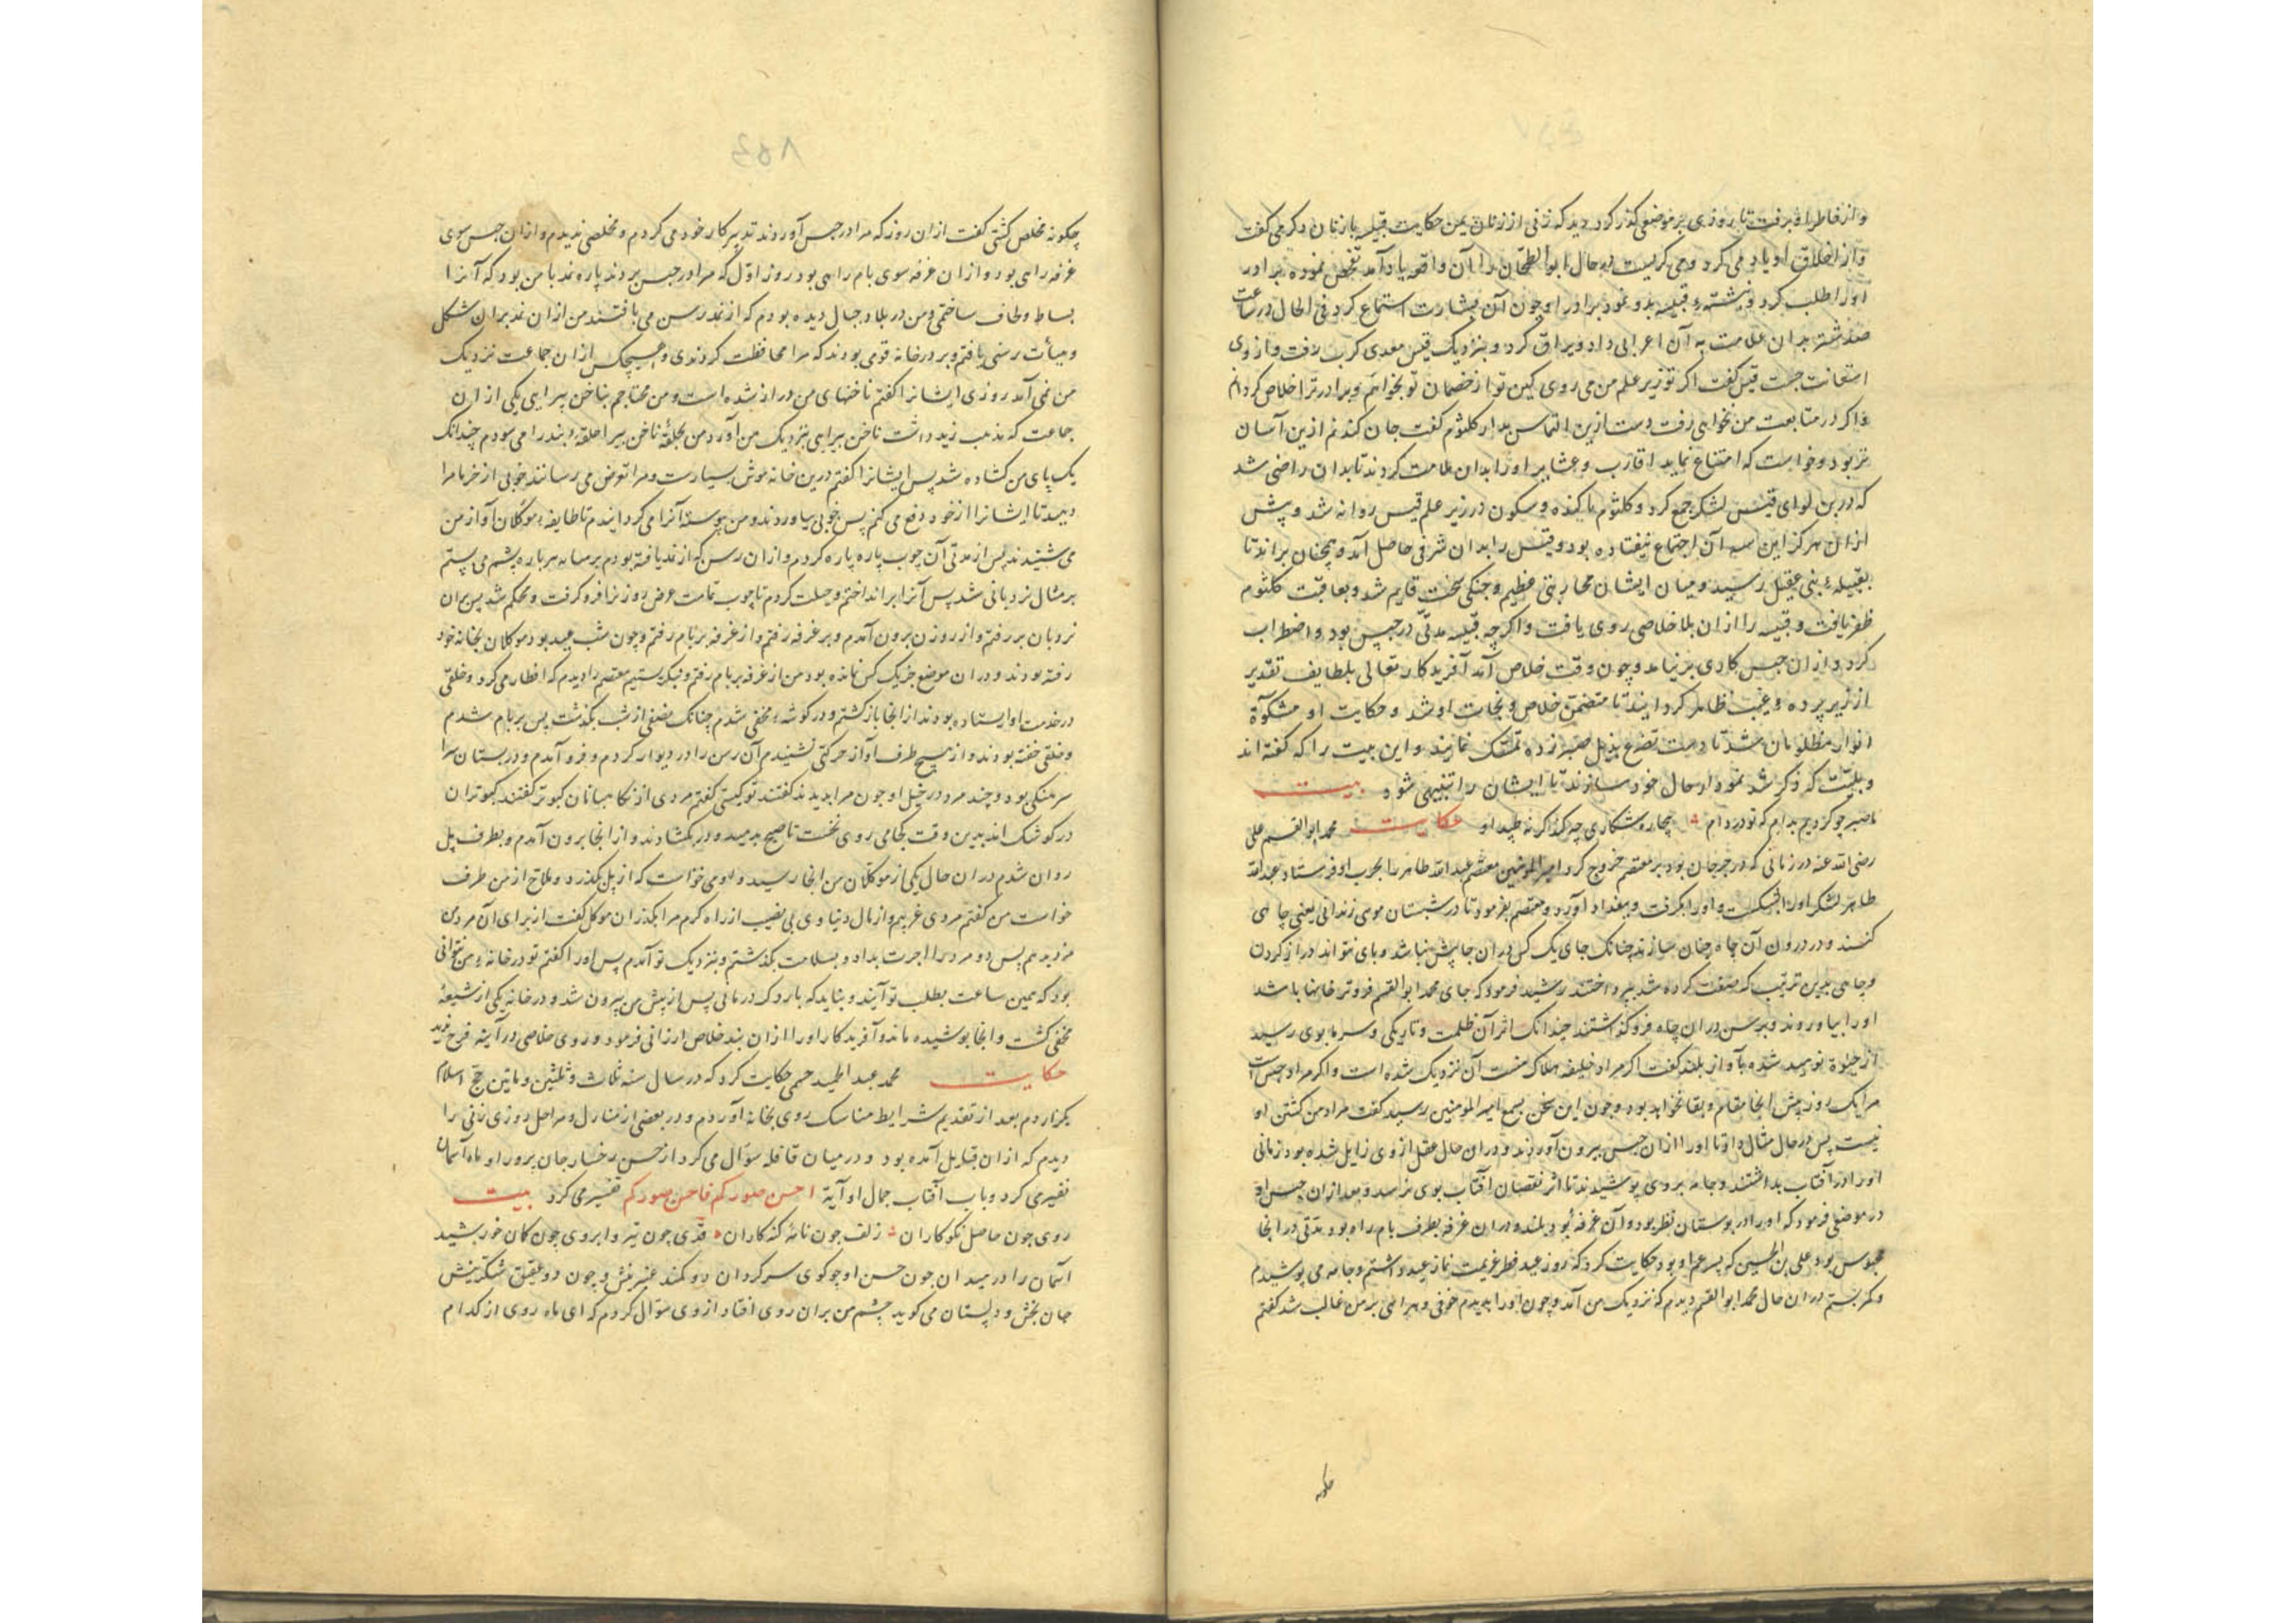 و از خاطر او برفت تا روزی بر موضعی گذر کرد دید که زنی از زنان یمن حکایت قیسبه با زنان دکر می گفت
و از اخلاق او یاد می کرد و می کریست در حال ابو الطمحان را آن واقعه یاد آمد تفحص نموده برادر
او را طلب کرد و نبشته قیسبه بدو نمود برادر او چون آن بشارت استماع کرد فی الحال در ساعت
صد شتر بدان علامت به آن اعرابی داد و براق کرد و بنزدیک قیس معدی کرب رفت و از وی
استعانت جست قیس گفت اکر تو زیر علم من می روی کین تو از خصمان تو بخواهم و برادر ترا خلاص کردانم
و اکر در متابعت من نخواهی رفت دست ازین التماس بدار کلثوم گفت جان کندنم ازین آسان
تر بود و خواست که امتناع نماید اقارب و عشایر او را بدان ملامت کردند تا بدان راضی شد
که در بن لوای قیس لشکر جمع کرد و کلثوم با کنده و سکون در زیر علم قیس روانه شد و پیش
ازان هرکز این آن اجتماع نیفتاده بود و قیس را بدان شرفی حاصل آمد و همچنان براند تا
بقبیله بنی عقیل رسید و میان ایشان محاربتی عظیم و جنکی سخت قایم شد و بعاقبت کلثوم
ظفر یافت و قیسبه را ازان بلا خلاصی روی یافت و اکرچه قیسبه مدتی در حبس بود و اضطراب
کرد و ازان حبس کاری بر نیامد و چون وقت خلاص آمد آفریدکار تعالی بلطایف تقدیر
از زیر پرده غیب ظاهر کردانید تا متضمن خلاص و نجات او شد و حکایت او مشکوة
انوار مظلومان شد تا دست تضرع بذیل صبر زده تمسک نمایند و این بیت را که گفته اند
و بیت که ذکر شد نمودار حال خود سازند تا ایشان را تنبیهی شود بیت
ما صبر چو کردیم بدام که تو در دام بیچاره شکاری چه کند کر نه طپد او حکایت محمد ابو القسم علی
رضی الله عنه در زمانی که در جرجان بود بر معتصم خروج کرد امیر المومنین معتصم عبد الله طاهر را بحرب او فرستاد عبد الله
طاهر لشکر او را بشکست و او را بکرفت و ببغداد آورد و معتصم بفرمود تا در شبستان موسی زندانی یعنی چاهی
کنند و در درون آن چاه چنان سازند چنانک جای یک کس دران جا بیش نباشد و پای نتواند دراز کردن
و چاهی بدین ترتیب که صفت کرده شد بپرداختند رشید فرمود که جای محمد ابو القسم فروتر خانها باشد
او را بیاوردند و برسن دران چاه فرو کذاشتند چندانک اثر آن ظلمت و تاریکی و سرما بوی رسید
از حیوة نومید شد بآواز بلند گفت اکر مراد خلیفه هلاک منست آن نزدیک شده است و اکر مراد حبس است
مرا یک روز بیش اینجا مقام و بقا نخواهد بود و چون این سخن بسمع امیر المومنین رسید گفت مراد من کشتن او
نیست پس در حال مثال داد تا او را ازان حبس بیرون آوردند و دران حال عقل از وی زایل شده بود زمانی
او را در آفتاب بداشتند و جامه بر وی پوشیدند تا اثر نقصان آفتاب بوی نرسد و بعد ازان حبس او
در موضعی فرمود که او را در بوستان نظر بود و آن غرفه بود بلند و دران غرفه بطرف بام راه بود مدتی در انجا
محبوس بود علی بن الحسین که پسر عم او بود حکایت کرد که روز عید فطر عزیمت نماز عید داشتم و جامه می پوشیدم
و کمر بستم دران حال محمد ابو القسم دیدم که نزدیک من آمد و چون او را بدیدم خوفی و هراسی بر من غالب شد گفتم
چکونه
چکونه مخلص کشتی گفت ازان روز که مرا در حبس آوردند تدبیر کار خود می کردم و مخلصی ندیدم و ازان حبس سوی
غرفه راهی بود و ازان غرفه سوی بام راهی بود روز اول که مرا در حبس بردند پاره نمد با من بود که آنرا
بساط و لحاف ساختمی و من در بلاد جبال دیده بودم که از نمد رسن می بافتند من ازان نمد بران شکل
و هیأت رسنی بافتم و بر در خانه قومی بودند که مرا محافظت کردندی و هیچکس ازان جماعت نزدیک
من نمی آمد روزی ایشانرا گفتم ناخنهای من دراز شده است و من محتاجم بناخن پیرایی یکی از ان
جماعت که مذهب زید داشت ناخن پیرایی بنزدیک من آورد من بحلقه ناخن پیرا حلقه بند را می سودم چندانک
یک پای من کشاده شد پس ایشانرا گفتم درین خانه موش بسیارست و مرا تعرض می رسانند چوبی از خرما مرا
دهید تا ایشانرا از خود دفع می کنم پس چوبی بیاوردند و من پیوسته آنرا می کردانیدم تا طایفه موکلان آواز من
می شنیدند پس از مدتی آن چوب پاره پاره کردم و ازان رسن که از نمد بافته بودم بر میانه هر پاره چشم می بستم
بر مثال نردبانی شد پس آنرا بر انداختم و حیلت کردم تا چوب تمامت عرض روزنرا فرو کرفت و محکم شد پس بران
نردبان بر رفتم و از روزن برون آمدم و بر غرفه رفتم و از غرفه بر بام رفتم و چون شب عید بود موکلان بخانه خود
رفته بودند و دران موضع جز یک کس نمانده بود من از غرفه بر بام رفتم و بنکریستیم معتصم را دیدم که افطار می کرد و خلقی
در خدمت او ایستاده بودند از انجا باز کشتم و در کوشه مخفی شدم چنانک نصفی از شب بکذشت پس بر بام شدم
و خلقی خفته بودند و از هیچ طرف آواز حرکتی نشنیدم آن رسن را در دیوار کردم و فرو آمدم و در بستان سرا
سرهنکی بود و چند مرد در خیل او چون مرا بدیدند گفتند تو کیستی گفتم مردی از نکاهبانان کبوتر گفتند کبوتران
در کوشک اند بدین وقت کجا می روی نخست تا صبح بدمید و در بکشادند و از انجا برون آمدم و بطرف پل
روان شدم دران حال یکی از موکلان من انجا رسید و او می خواست که از پل بکذرد و ملاح از من طرف
خواست من گفتم مردی غریبم و از مال دنیاوی بی نصیب از راه کرم مرا بکذران موکل گفت از برای آن مرد
مزد بدهم پس دو مرد را اجرت بداد و بسلامت بکذشتم و بنزدیک تو آمدم پس او را گفتم تو در خانه من نتوانی
بود که همین ساعت بطلب تو آیند و نباید که بار دکر درمانی پس از پیش من بیرون شد و در خانه یکی از شیعه
مخفی کشت و انجا پوشیده ماند و آفریدکار او را ازان بند خلاص ارزانی فرمود و روی خلاصی در آینه فرح بدید
حکایت محمد عبد الحمید حکایت کرد که در سال سنه ثلاث و ثلثین و ماتین حج اسلام
بکزاردم بعد از تقدیم شرایط مناسک روی بخانه آوردم و در بعضی از منازل و مراحل روزی زنی را
دیدم که ازان قبایل آمده بود و در میان قافله سؤال می کرد از حسن رخسار جان پرور او ماه آسمان
نفیری کرد و باب آفتاب جمال او آیة احسن صورکم فاحسن صورکم تفسیر می کرد بیت
روی چون حاصل نکوکاران زلف چون نامه کنه کاران قدی چون تیر و ابروی چون کمان خورشید
آسمان را در میدان چون حسن او چو کوی سرکردان دو کمند عنبرینش و چون دو عقیق شکرینش
جان بخش و دلستان می کوید چشم من بران روی افتاد از وی سؤال کردم که ای ماه روی از کدام